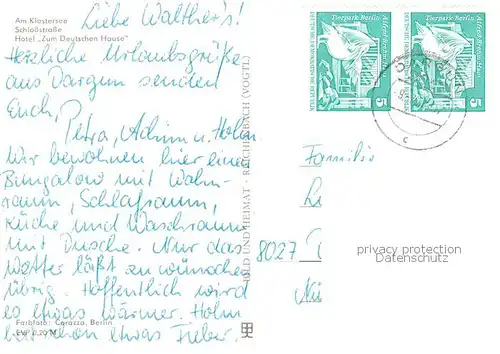 Am Klostersee
Schloßstraße
Hotel „Zum Deutschen Hause"
Liebe Walther's!
Herzliche Urlaubsgrüße
aus Dargun senden
Euch,
Petra, Achim u. Holm
Wir bewohnen hier einen
Bungalow mit Wohn-
raum, Schlafraum,
Küche und Waschraum
mit Dusche. Nur das
Wetter läßt zu wünschen
übrig. Hoffentlich wird
es etwas wärmer. Holm
hat schon etwas Fieber.
Farbfoto: Corazza, Berlin
EVP 0,20 M
BILD UND HEIMAT · REICHENBACH (VOGTL)
Tierpark Berlin
Alfred-Brehm-Haus
DEUTSCHE DEMOKRATISCHE REPUBLIK
5
Tierpark Berlin
Alfred-Brehm-Haus
5
c
Familie
8027
privacy protection
Datenschutz